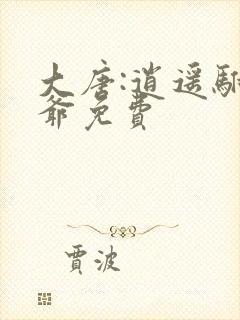 大唐:逍遥驸
爷免费
贾波